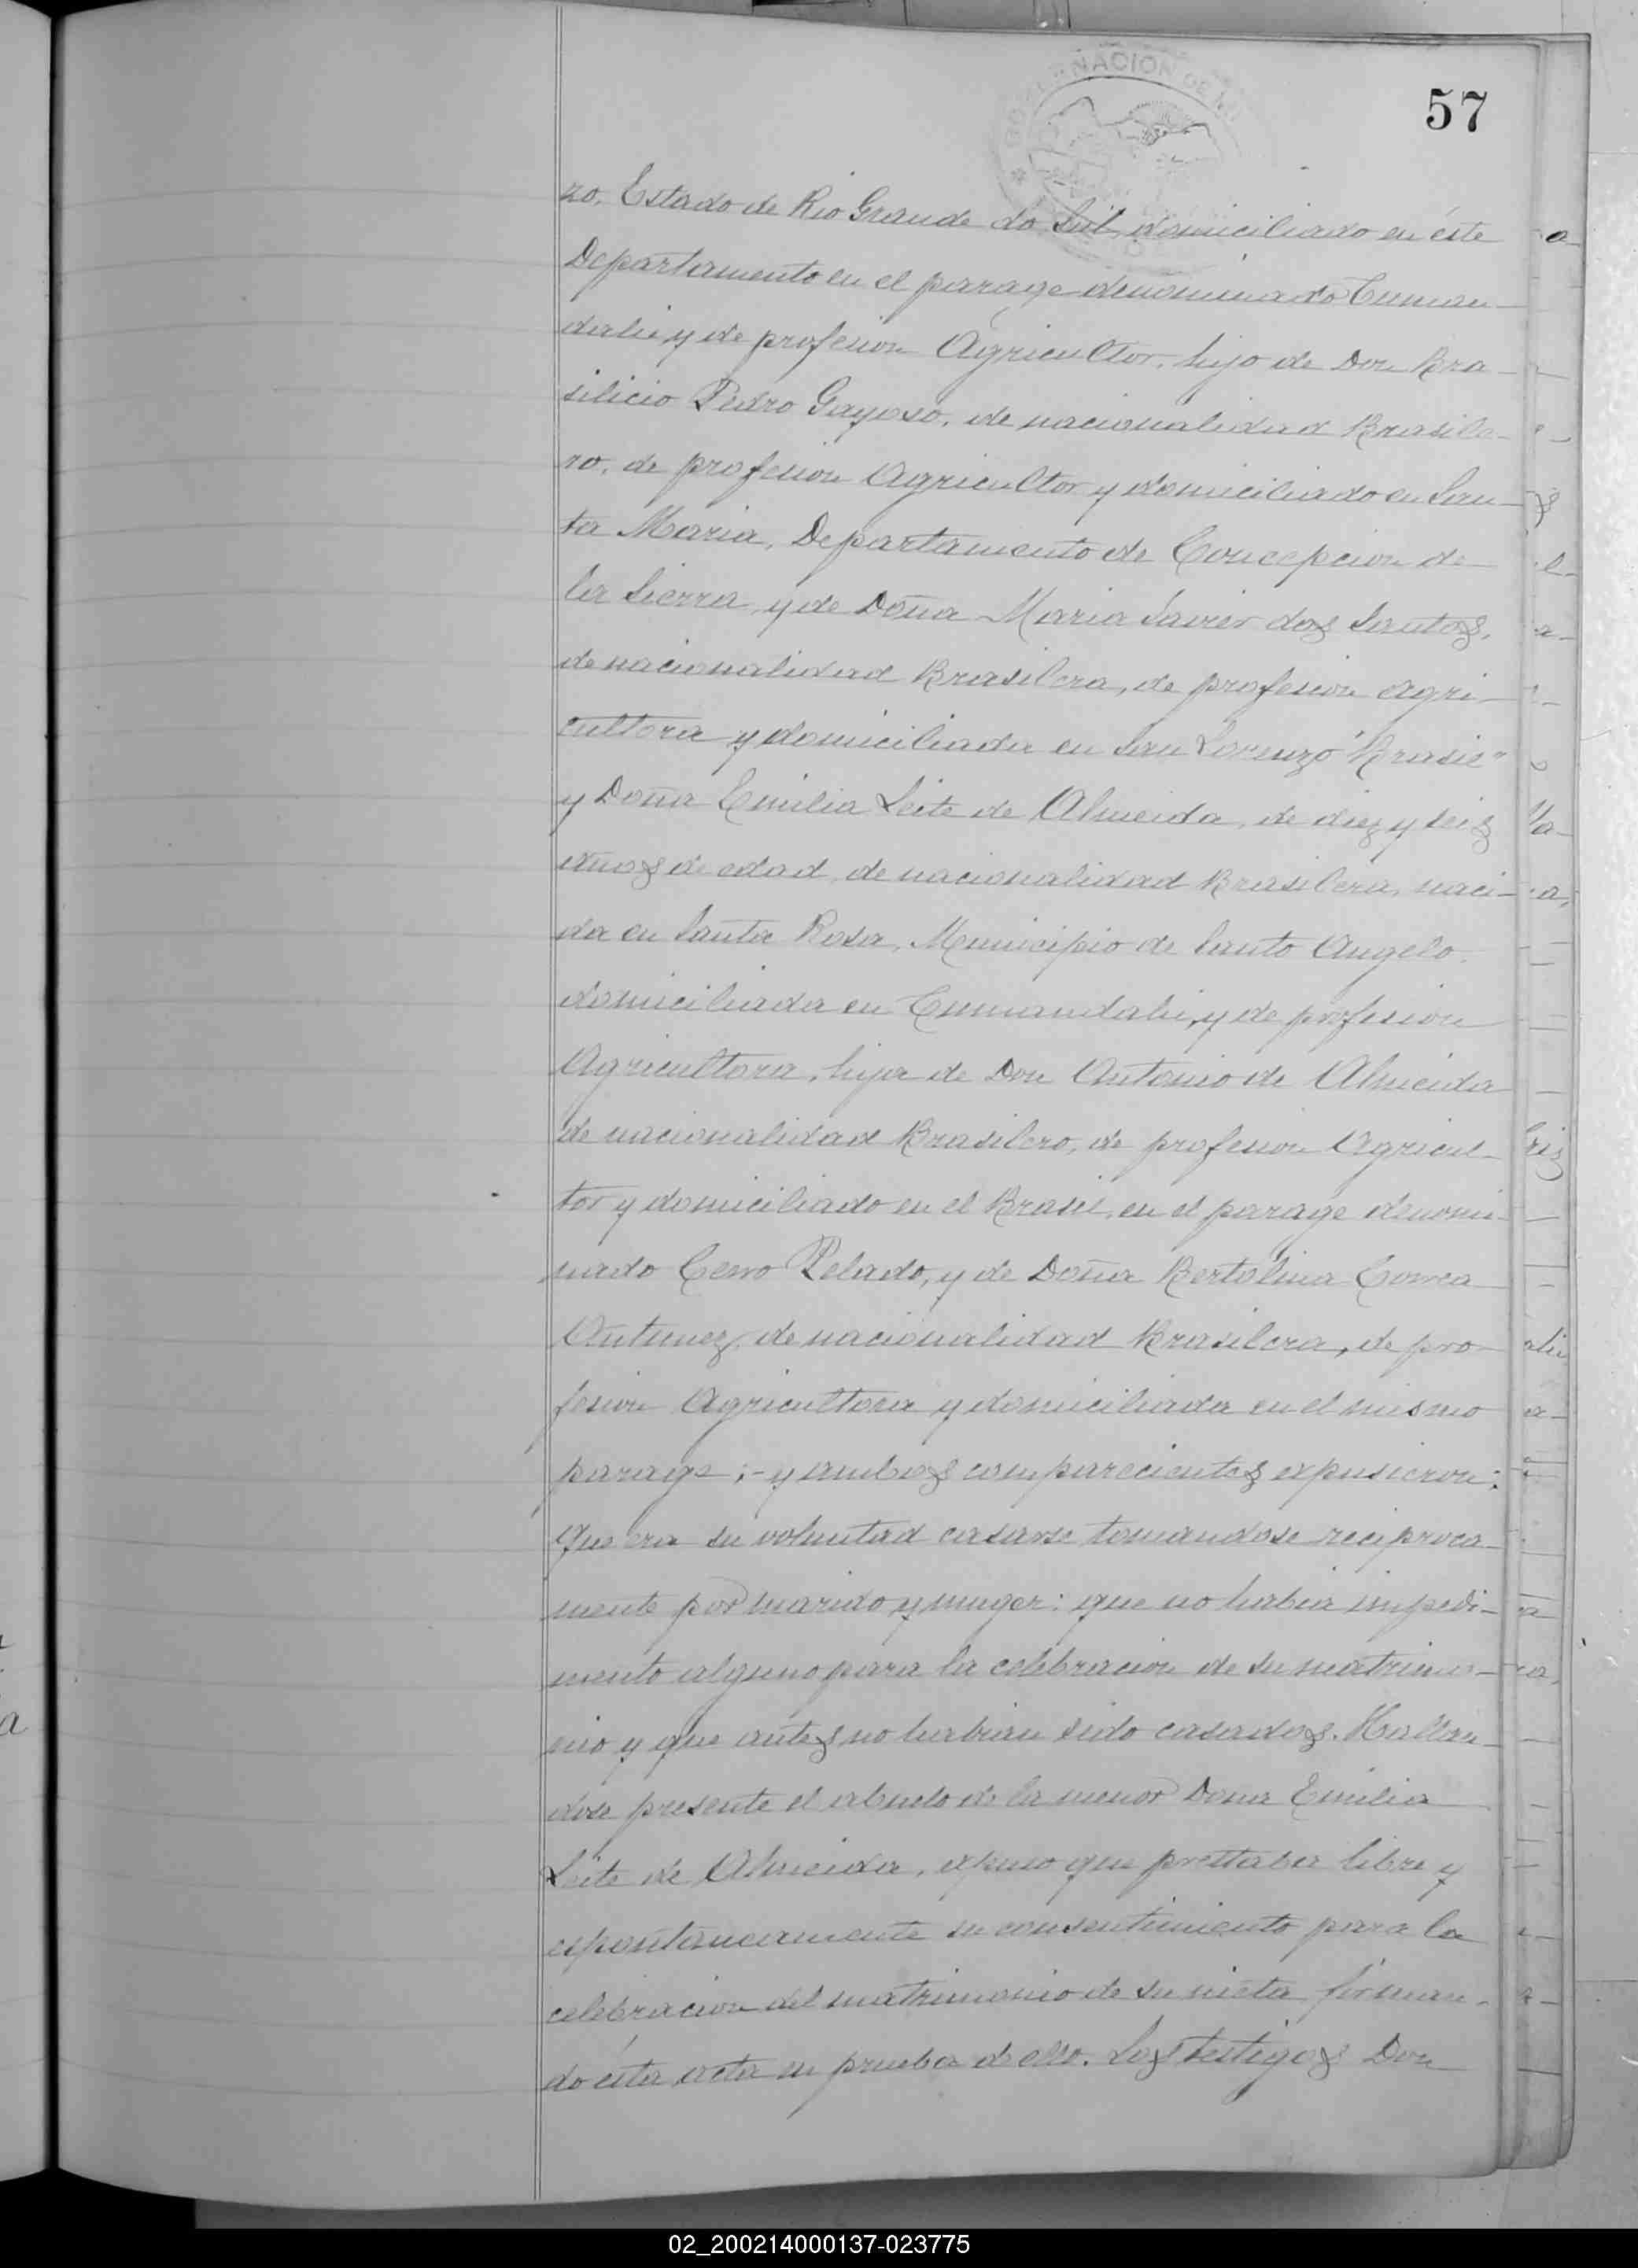 GOBERNACION DE
57
zo, Estado de Rio Grande do Sul, domiciliado en éste
Departamento en el parage denominado Cuman-
dahi y de profesion Agricultor, hijo de Don Bra-
silicio Pedro Gayoso, de nacionalidad Brasile-
ro, de profesion Agricultor y domiciliado en San-
ta Maria, Departamento de Concepcion de
la Sierra, y de Doña Maria Savier dos Santos,
de nacionalidad Brasilera, de profesion Agri-
cultora y domiciliada en San Lorenzo "Brasil"
y Doña Emilia Leite de Almeida, de diez y seis
años de edad, de nacionalidad Brasilera, naci-
da en Santa Rosa, Municipio de Santo Angelo,
domiciliada en Cumandahi, y de profesion
Agricultora, hija de Don Antonio de Almeida
de nacionalidad Brasilero, de profesion Agricul-
tor y domiciliado en el Brasil, en el parage denomi-
nado Cerro Pelado, y de Doña Bertolina Correa
Antunez, de nacionalidad Brasilera, de pro-
fesion Agricultora y domiciliada en el mismo
parage; - y ambos comparecientes expusieron:
Que era su voluntad casarse tomandose reciproca-
mente por marido y muger: que no habia impedi-
mento alguno para la celebracion de su matrimo-
nio y que antes no habian sido casados. Hallan-
dose presente el abuelo de la menor Dona Emilia
Leite de Almeida, expuso que prestaba libre y
espontaneamente su consentimiento para la
celebracion del matrimonio de su nieta firman-
do ésta acta en prueba de ello. Los testigos Don
02_200214000137-023775